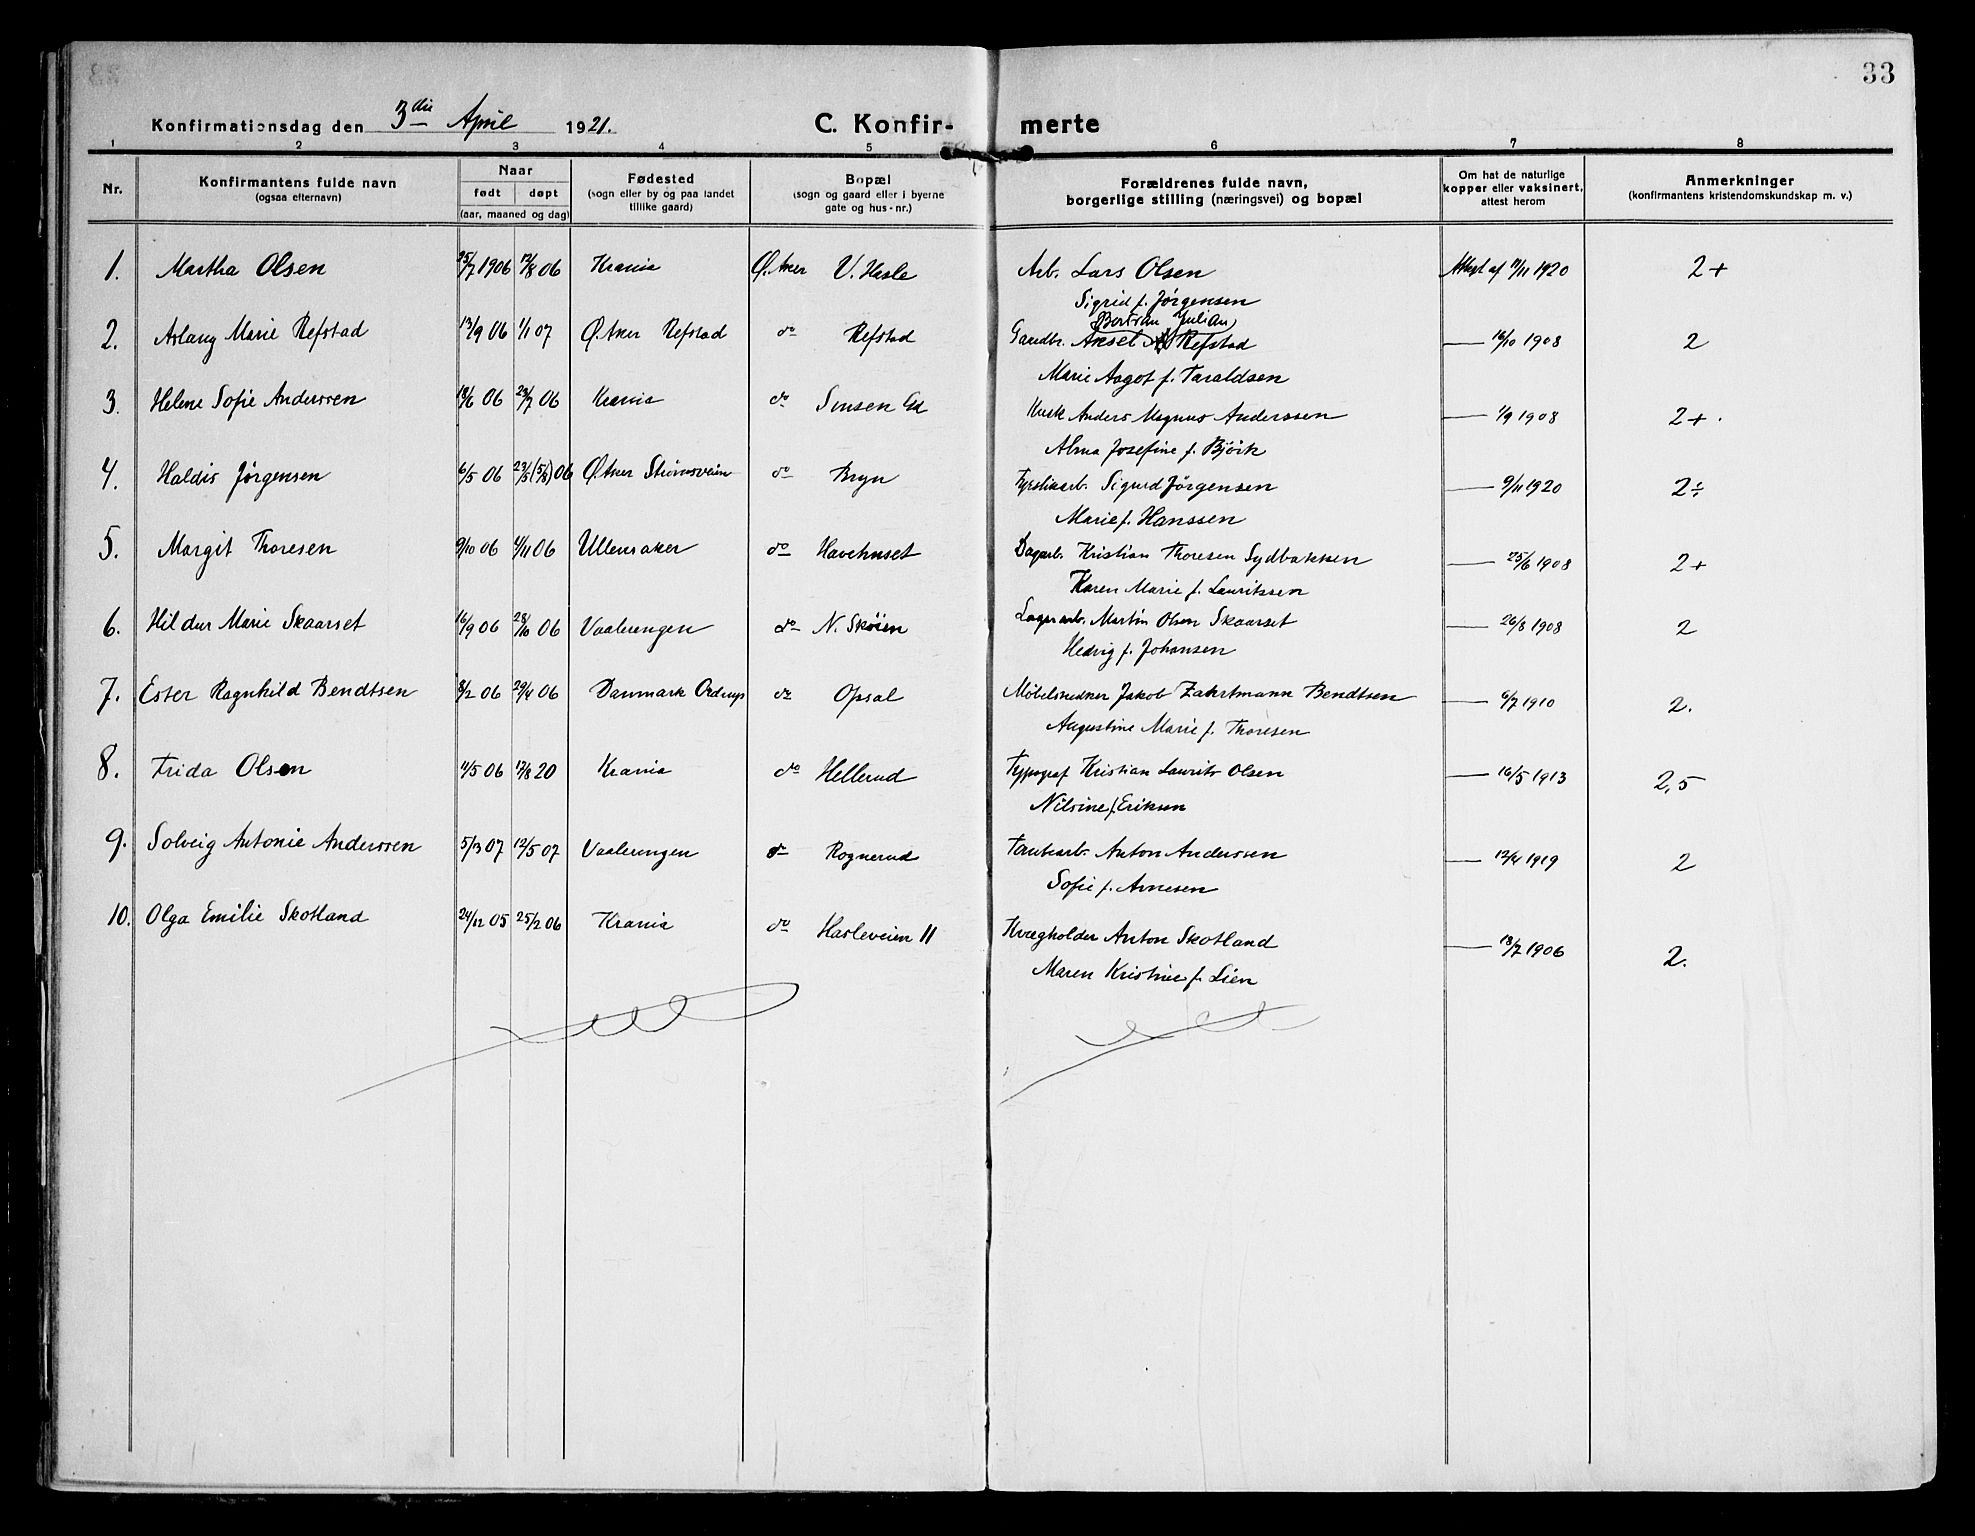 33
Konfirmationsdag den 3die April 1921.
C. Konfirmerte
1 2 3 4 5 6 7 8
Nr.
Konfirmantens fulde navn
(ogsaa efternavn)
Naar
født døpt
(aar, maaned og dag)
Fødested
(sogn eller by og paa landet
tillike gaard)
Bopæl
(sogn og gaard eller i byerne
gate og hus-nr.)
Forældrenes fulde navn,
borgerlige stilling (næringsvei) og bopæl
Om hat de naturlige
kopper eller vaksinert,
attest herom
Anmerkninger
(konfirmantens kristendomskundskap m. v.)
1. Martha Olsen 25/7 1906 12/8 06 Krania Ø. Aker V. Hasle Arb. Lars Olsen Attest af 11/11 1920 2+
Sigrid f. Jørgensen
Bertran Julian
2. Aslaug Marie Refstad 13/9 06 1/1 07 Ø. Aker Refstad do Refstad Gaardbr. Aksel Refstad — 16/10 1908 2
Marie Aagot f. Taraldsen
3. Helene Sofie Anderssen 18/6 06 29/7 06 Krania do Sinsen Gd Kusk Anders Magnus Anderssen — 1/9 1908 2+.
Alma Josefine f. Björk
4. Haldis Jørgensen 6/5 06 23/5 (5/8) 06 Ø. Aker Strømsveien do Bryn Fyrstikarb. Sigurd Jørgensen — 9/11 1920 2÷
Marie f. Hanssen
5. Margit Thoresen 9/10 06 4/11 06 Ullensaker do Havehuset Dagarb. Kristian Thoresen Sydbakken — 25/6 1908 2+
Karen Marie f. Lauritssen
6. Hildur Marie Skaarset 16/9 06 28/10 06 Vaalerengen do N. Skøien Lagerarb. Martin Olsen Skaarset — 26/8 1908 2
Hedvig f. Johansen
7. Ester Ragnhild Bendtsen 8/2 06 29/4 06 Danmark Ordrup do Opsal Møbelsnedker Jakob Zahrtmann Bendtsen — 6/7 1910 2.
Augustine Marie f. Thoresen
8. Frida Olsen 11/5 06 17/8 20 Krania do Hellerud Typograf Kristian Laurits Olsen — 16/5 1913 2,5
Nilsine f. Eriksen
9. Solveig Antonie Anderssen 5/13 07 12/5 07 Vaalerengen do Rognerud Tomtearb. Anton Anderssen — 12/4 1919 2
Sofie f. Arnesen
10. Olga Emilie Skotland 24/12 05 25/2 06 Krania do Hasleveien 11 Kvægholder Anton Skotland — 18/7 1906 2.
Maren Kristine f. Lien